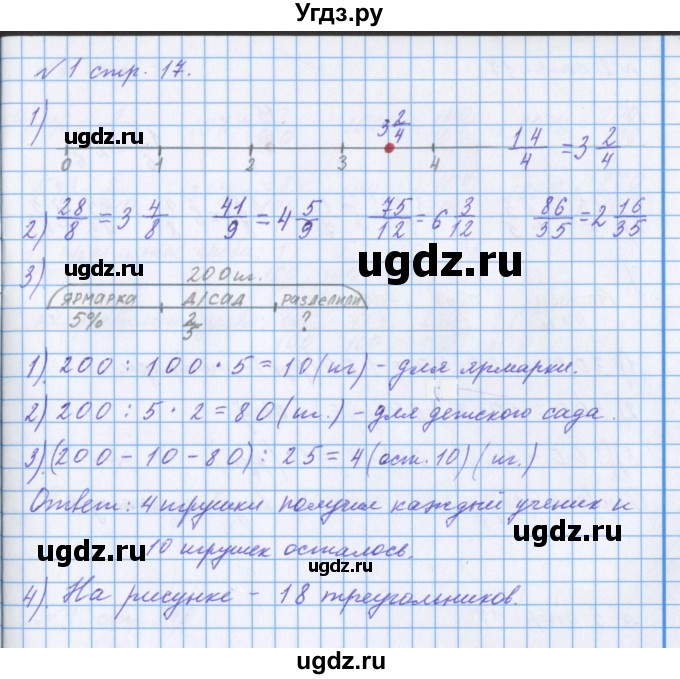 Угдз.ру
№1 стр. 17.
1) 3 2/4
ugdz.ru
0 1 2 3 4 14/4 = 3 2/4
ugdz.ru
2) 28/8 = 3 4/8 41/9 = 4 5/9 75/12 = 6 3/12 86/35 = 2 16/35
3) 200 шт.
ugdz.ru
ugdz.ru
ЯРМАРКА Д/САД РАЗДЕЛИЛИ
5% 2/5 ?
1). 200 : 100 · 5 = 10 (шт) - для ярмарки.
ugdz.ru
2) 200 : 5 · 2 = 80 (шт.) - для детского сада.
ugdz.ru
3). (200 - 10 - 80) : 25 = 4 (ост. 10) (шт.)
Ответ: 4 игрушки получил каждый ученик и
ugdz.ru
10 игрушек осталось.
ugdz.ru
ugdz.ru
4). На рисунке - 18 треугольников.
ugdz.ru
ugdz.ru